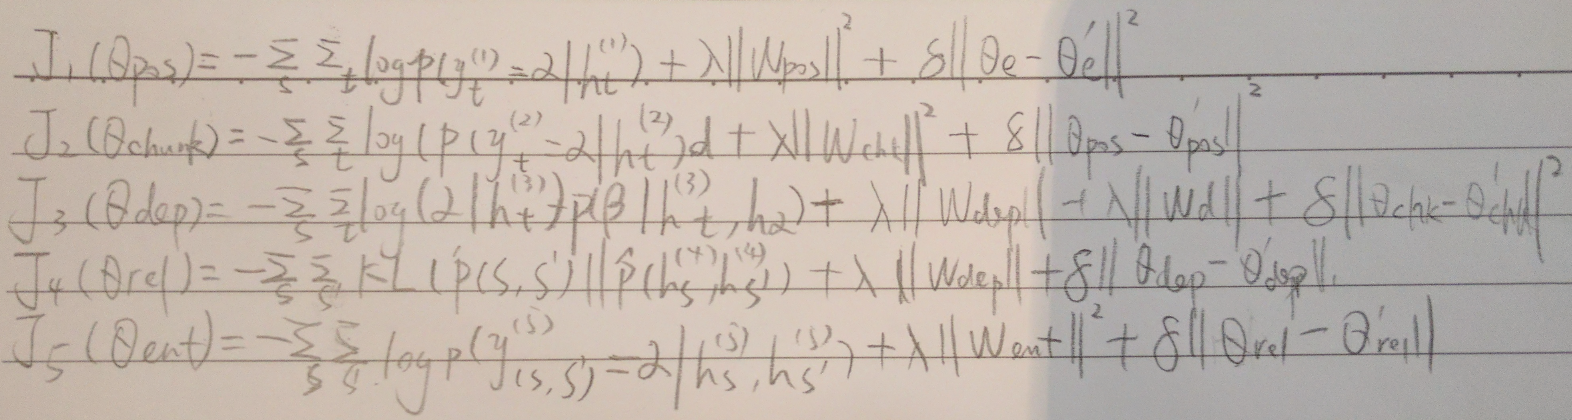 J₁(θpos) = -Σₛ Σₜ log p(yₜ⁽¹⁾ = α | hₜ⁽¹⁾) + λ||Wpos||² + δ||θe - θ'e||²
J₂(θchunk) = -Σₛ Σₜ log(p(yₜ⁽²⁾ - α | hₜ⁽²⁾)d + λ||Wchk||² + δ||θpos - θ'pos||²
J₃(θdep) = -Σₛ Σₜ log(α | hₜ⁽³⁾) + p(β | hₜ⁽³⁾, hα) + λ||Wdep|| + λ||Wd|| + δ||θchk - θ'chk||²
J₄(θrel) = -Σₛ Σₛ' KL(p(s,s') || p̂(hₛ⁽⁴⁾, hₛ'⁽⁴⁾) + λ||Wdep|| + δ||θdep - θ'dep||
J₅(θent) = -Σₛ Σₛ' log p(y⁽⁵⁾(s,s') = α | hₛ⁽⁵⁾, hₛ'⁽⁵⁾) + λ||Went||² + δ||θrel - θ'rel||